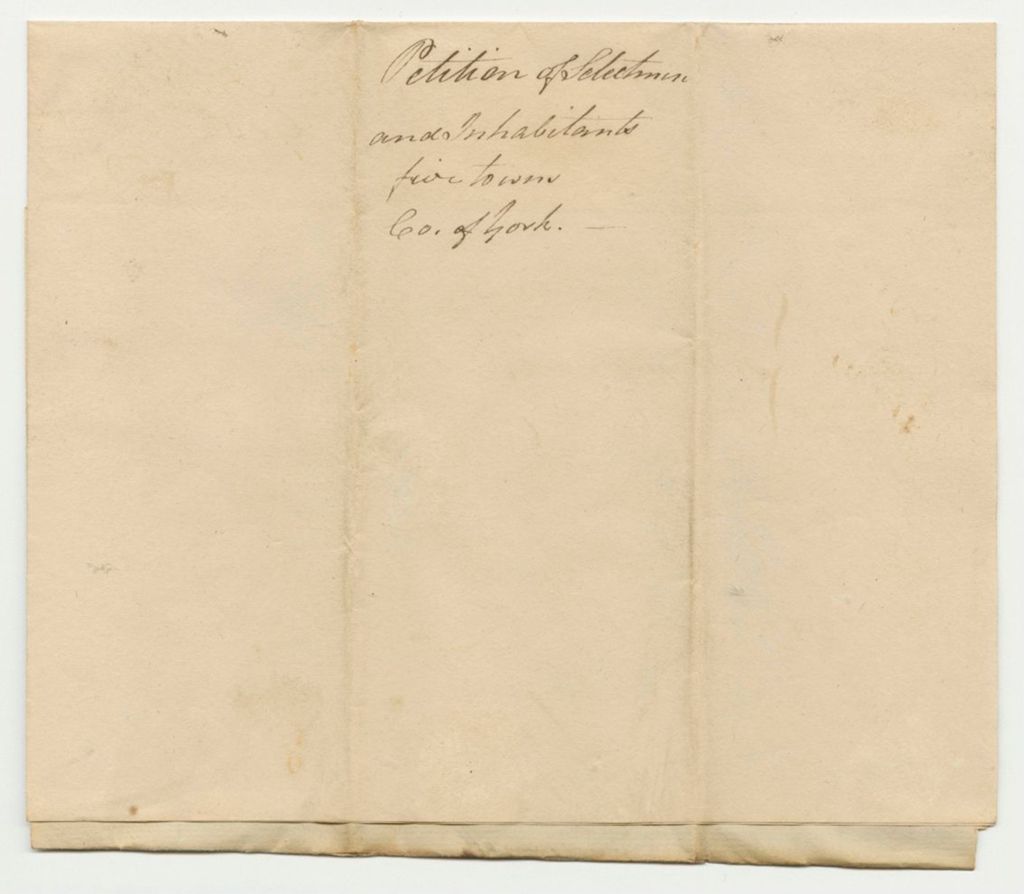 Petition of Selectmen
and Inhabitants
five towns
Co. of York. —